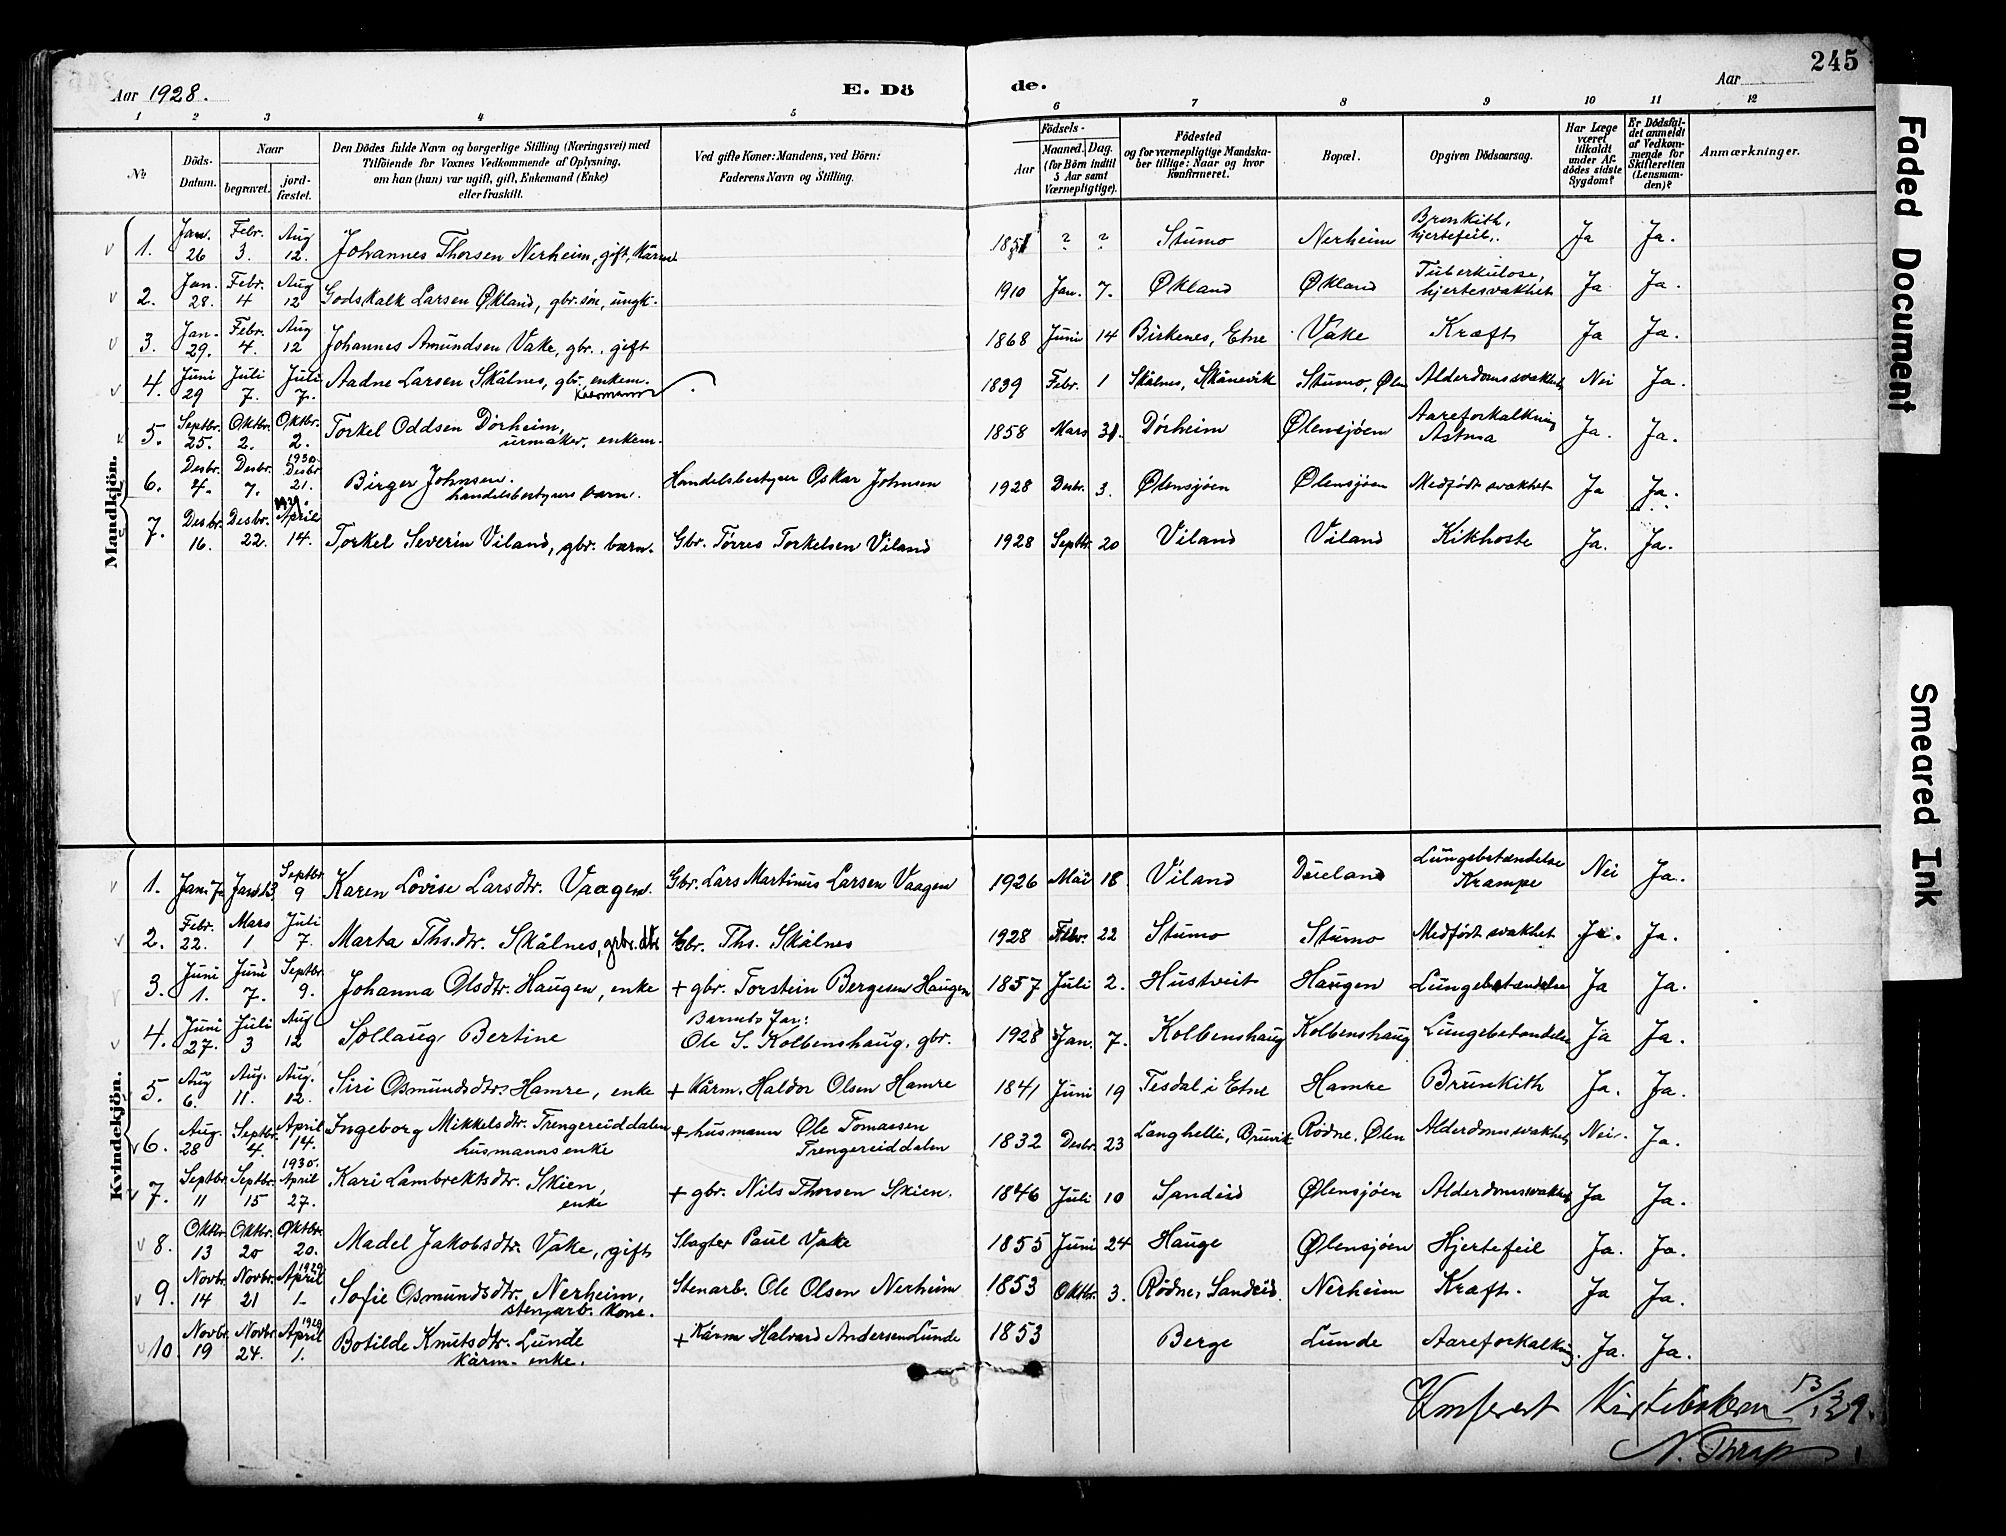 245
Aar 1928.
E. Dö de.
Aar
1 2 3 4 5 6 7 8 9 10 11 12
No
Döds-Datum.
Naar begravet. jordfæstet.
Den Dödes fulde Navn og borgerlige Stilling (Næringsvei) med
Tilföiende for Voxnes Vedkommende af Oplysning,
om han (hun) var ugift, gift, Enkemand (Enke)
eller fraskilt.
Ved gifte Koner: Mandens, ved Börn:
Faderens Navn og Stilling.
Födsels-
Aar Maaned. Dag.
(for Börn indtil 5 Aar samt Værnepligtige).
Födested
og for værnepligtige Mandskaber tillige: Naar og hvor konfirmeret.
Bopæl.
Opgiven Dödsaarsag.
Har Læge været tilkaldt under Afdödes sidste Sygdom?
Er Dödsfaldet anmeldt af Vedkommende for Skifteretten (Lensmanden)?
Anmærkninger.
Mandkjön.
1. Jan. 26 Febr. 3. Aug 12. Johannes Thorsen Nerheim, gift, kårm 1851 ? ? Stumo Nerheim Bronkith, hjertefeil. Ja Ja.
2. Jan. 28. Febr. 4 Aug 12 Godskalk Larsen Økland, gbr. søn, ungk. 1910 Jan. 7. Økland Økland Tuberkulose, hjertesvakhet Ja Ja.
3. Jan. 29. Febr. 4. Aug 12 Johannes Amundsen Vake, gbr., gift 1868 Juni 14 Birkenes, Etne Vake Kræft Ja Ja.
4. Juni 29 Juli 7. Juli 7. Aadne Larsen Skålnes, gbr., enkem. Kaarmann 1839 Febr. 1 Skålnes, Skånevik Stumo, Ølen Alderdomssvakhet Nei Ja.
5. Septbr. 25. Oktbr. 2. Oktbr. 2. Torkel Oddsen Dørheim, urmaker, enkem. 1858 Mars 31. Dørheim Ølensjøen Aareforkalkning Astma Ja. Ja.
6. Desbr. 4. Desbr. 7. 1930 Desbr. 21. Birger Johnsen. handelsbestyrers barn. Handelsbestyrer Oskar Johnsen 1928 Desbr. 3. Ølensjøen Ølensjøen Medfødt svakhet Ja Ja.
7. Desbr. 16. Desbr. 22. 1929. April 14. Torkel Severin Viland, gbr. barn. Gbr. Tørres Torkelsen Viland 1928 Septbr. 20 Viland Viland Kikhoste Ja. Ja.
Kvindekjön.
1. Jan. 7 Jan. 13 Septbr. 9 Karen Lovise Larsdtr. Vaagen. Gbr. Lars Martinus Larsen Vaagen 1926 Mai 18 Viland Dueland Lungebetændelse Krampe Nei Ja.
2. Febr. 22. Mars 1 Juli 7. Marta Ths.dtr. Skålnes, gbr. dtr. Gbr. Ths. Skålnes 1928 Febr. 22 Stumo Stumo Medfødt svakhet Ja. Ja.
3. Juni 1. Juni 7. Septbr. 9. Johanna Olsdtr. Haugen, enke + gbr. Torstein Bergesen Haugen 1857 Juli 2. Hustveit Haugen Lungebetændelse Ja Ja.
4. Juni 27. Juli 3 Aug 12 Sollaug Bertine Barnets far: Ole S. Kolbenshaug, gbr. 1928 Jan. 7. Kolbenshaug Kolbenshaug Lungebetændelse Ja Ja.
5. Aug 6. Aug. 11. Aug. 12. Siri Osmundsdtr. Hamre, enke + Kårm. Haldor Olsen Hamre 1841 Juni 19 Tesdal i Etne Hamre Brunkith Ja. Ja.
6. Aug. 28 Septbr. 4. April 14. Ingeborg Mikkelsdtr. Trengereiddalen husmannsenke + husmann Ole Tomassen Trengereiddalen 1832 Desbr. 23 Langhelle, Bruvik Rødne, Ølen Alderdomssvakhet Nei. Ja.
7. Septbr. 11 Septbr. 15 1930. April 27. Kari Lambrektsdtr. Skien, enke + gbr. Nils Thorsen Skien. 1846 Juli 10 Sandeid Ølensjøen Alderdomssvakhet Ja Ja.
8. Oktbr. 13 Oktbr. 20 Oktbr. 20. Madel Jakobsdtr. Vake, gift Slagter Paul Vake 1855 Juni 24 Hauge Ølensjøen Hjertefeil Ja. Ja.
9. Novbr. 14 Novbr. 21 1929 April 1. Sofie Osmundsdtr. Nerheim, stenarb. kone. Stenarb. Ole Olsen Nerheim 1853 Oktbr. 3. Rødne, Sandeid. Nerheim Kræft. Ja Ja.
10. Novbr. 19 Novbr. 24. 1929 April 1. Botilde Knutsdtr. Lunde kårm. enke. + Kårm Halvard Andersen Lunde 1853 Berge Lunde Aareforkalkning. Ja. Ja.
Konferert Kirkeboken 13/3 29.
N. Thrap
Faded Document
Smeared Ink